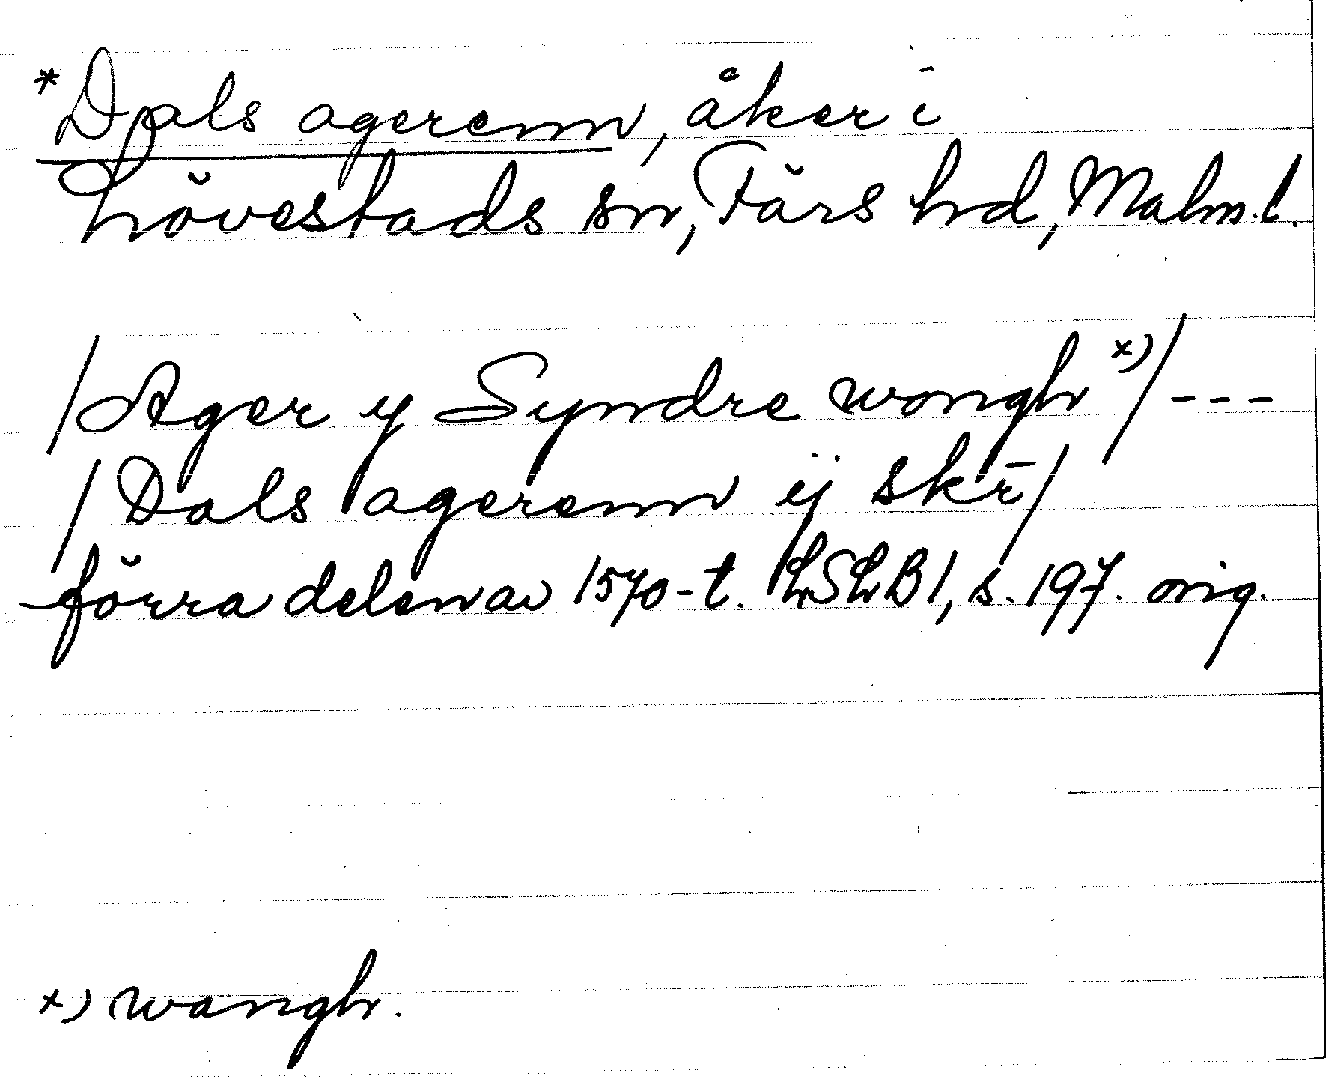 *Dals agerenn, åker i
Lövestads sn, Färs hd, Malm.l.
/Ager y Syndre wongh x)/ ---
/Dals agerenn ij skr̄/
förra delen av 1570-t. LSLB1, s. 197. orig.
x) wangh.